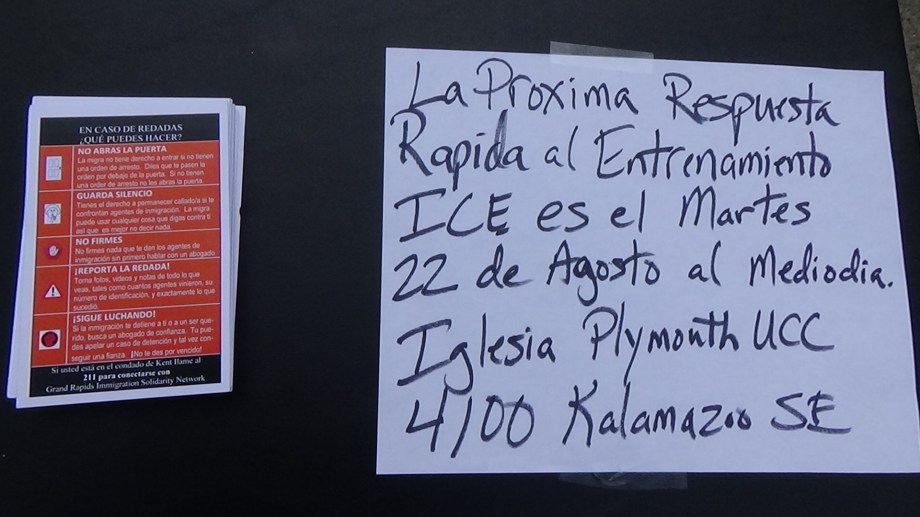 EN CASO DE REDADAS
¿QUÉ PUEDES HACER?
NO ABRAS LA PUERTA
La migra no tiene derecho a entrar si no tienen
una orden de arresto. Diles que te pasen la
orden por debajo de la puerta. Si no tienen
una orden de arresto no les abras la puerta.
GUARDA SILENCIO
Tienes el derecho a permanecer callado/a si te
confrontan agentes de inmigración. La migra
puede usar cualquier cosa que digas contra ti
así que es mejor no decir nada.
NO FIRMES
No firmes nada que te den los agentes de
inmigración sin primero hablar con un abogado
¡REPORTA LA REDADA!
Toma fotos, videos y notas de todo lo que
veas, tales como cuantos agentes vinieron, su
número de identificación, y exactamente lo que
sucedió.
¡SIGUE LUCHANDO!
Si la inmigración te detiene a ti o a un ser que-
rido, busca un abogado de confianza. Tu pue-
des apelar un caso de detención y tal vez con-
seguir una fianza. ¡No te des por vencido!
Si usted está en el condado de Kent llame al
211 para conectarse con
Grand Rapids Immigration Solidarity Network
La Proxima Respuesta
Rapida al Entrenamiento
ICE es el Martes
22 de Agosto al Mediodia.
Iglesia Plymouth UCC
4100 Kalamazoo SE